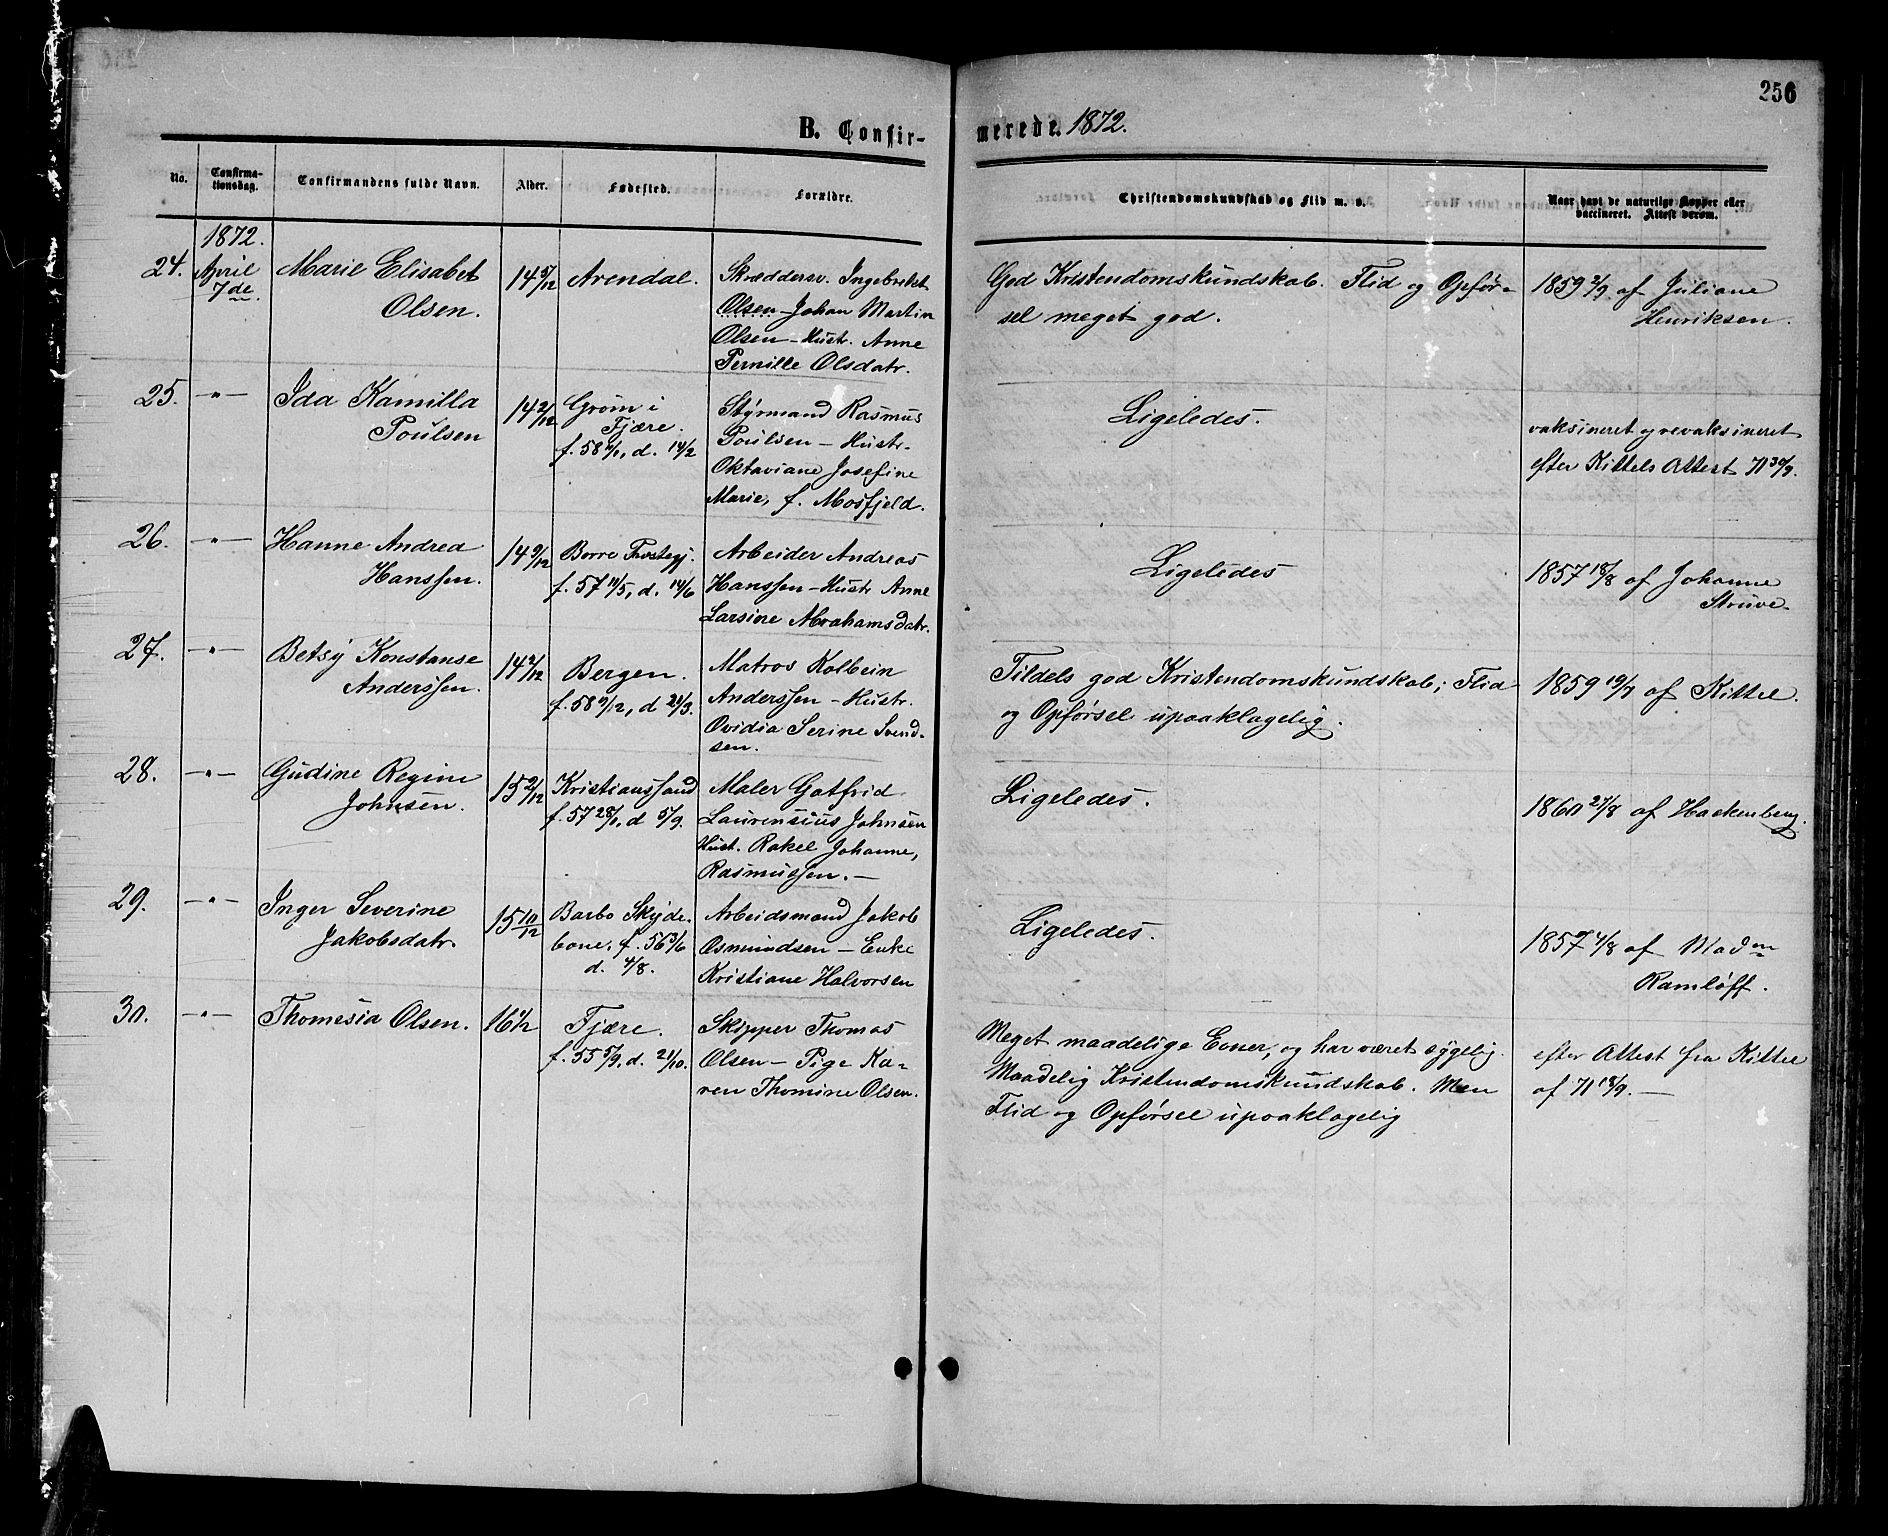 256
B. Confir-
merede. 1872.
No.
Confirma-
tionsdag.
Confirmandens fulde Navn.
Alder.
Fødested.
Forældre.
Christendomskundskab og Flid m. v.
Naar havt de naturlige Kopper eller
vaccineret. Attest derom.
1872.
24. April
7de
Marie Elisabet
Olsen.
14 5/12
Arendal.
Skræddersv. Ingebrekt
Olsen - Johan Martin
Olsen - Hustr. Anne
Pernille Olsdatr.
God Kristendomskundskab. Flid og Opfør-
sel meget god.
1859 2/9 af Juliane
Henriksen.
25. -"-
Ida Kamilla
Poulsen
14 2/12
Grøm i
Fjære.
f. 58, d. 14/2
Styrmand Rasmus
Poulsen - Hustr.
Oktaviane Josefine
Marie, f. Mosfjeld.
Ligeledes.
vaksineret og revaksineret
efter Kittels Attest 71 30/9.
26. -"-
Hanne Andrea
Hanssen.
14 9/12
Borre
f. 57 11/5, d. 14/6
Arbeider Andreas
Hanssen - Hustr Anne
Larsine Abrahamsdatr.
Ligeledes
1857 18/8 af Johanne
Struve.
27. -"-
Betsy Konstanse
Anderssen.
14 2/12
Bergen.
f. 58 9/2, d 21/3.
Matros Kolbein
Anderssen - Hustr.
Ovidia Serine Svend-
sen.
Tildels god Kristendomskundskab; Flid
og Opførsel upaaklagelig.
1859 19/7 af Kittel.
28. -"-
Gudine Regine
Johnsen.
15 2/12
Kristianssand
f. 57 28/1, d 5/9.
Maler Gotfrid
Laurensius Johnsen
Hust. Rakel Johanne,
Rasmussen. -
Ligeledes.
1860 27/8 af Hackenberg.
29. -"-
Inger Severine
Jakobsdatr.
15 10/12
Barbo Skyde-
bane, f. 56 3/6
d. 4/8.
Arbeidsmand Jakob
Osmundsen - Enke
Kristiane Halvorsen
Ligeledes.
1857 4/8 af Madm
Ramløff.
30. -"-
Thomesia Olsen.
16 1/2
Fjære.
f. 55 5/9, d. 21/10.
Skipper Thomas
Olsen - Pige Ka-
ren Thomine Olsen.
Meget maadelige Evner, og har været sygelig.
Maadelig Kristendomskundskab. Men
Flid og Opførsel upaaklagelig
efter Attest fra Kittel
af 71 18/9. -